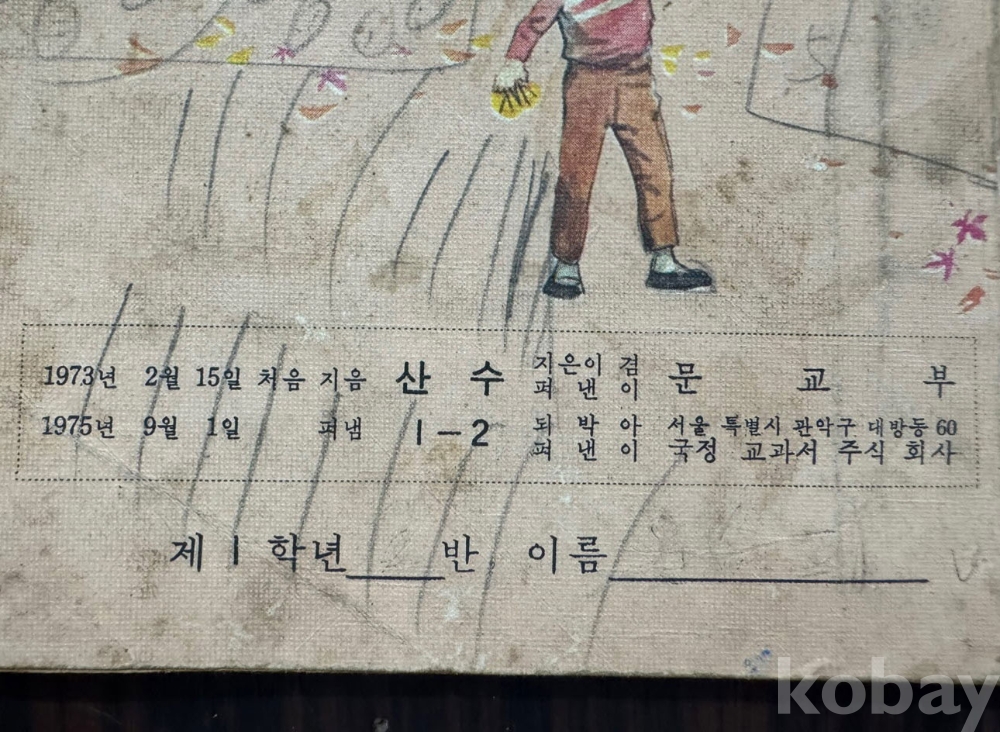 1973년 2월 15일 처음 지음 산 수 지은이 겸 문 교 부
펴 낸 이
1975년 9월 1일 펴냄 1-2 되 박 아 서울 특별시 관악구 대방동 60
펴 낸 이 국정 교과서 주식 회사
제 1 학년 반 이름
kobay